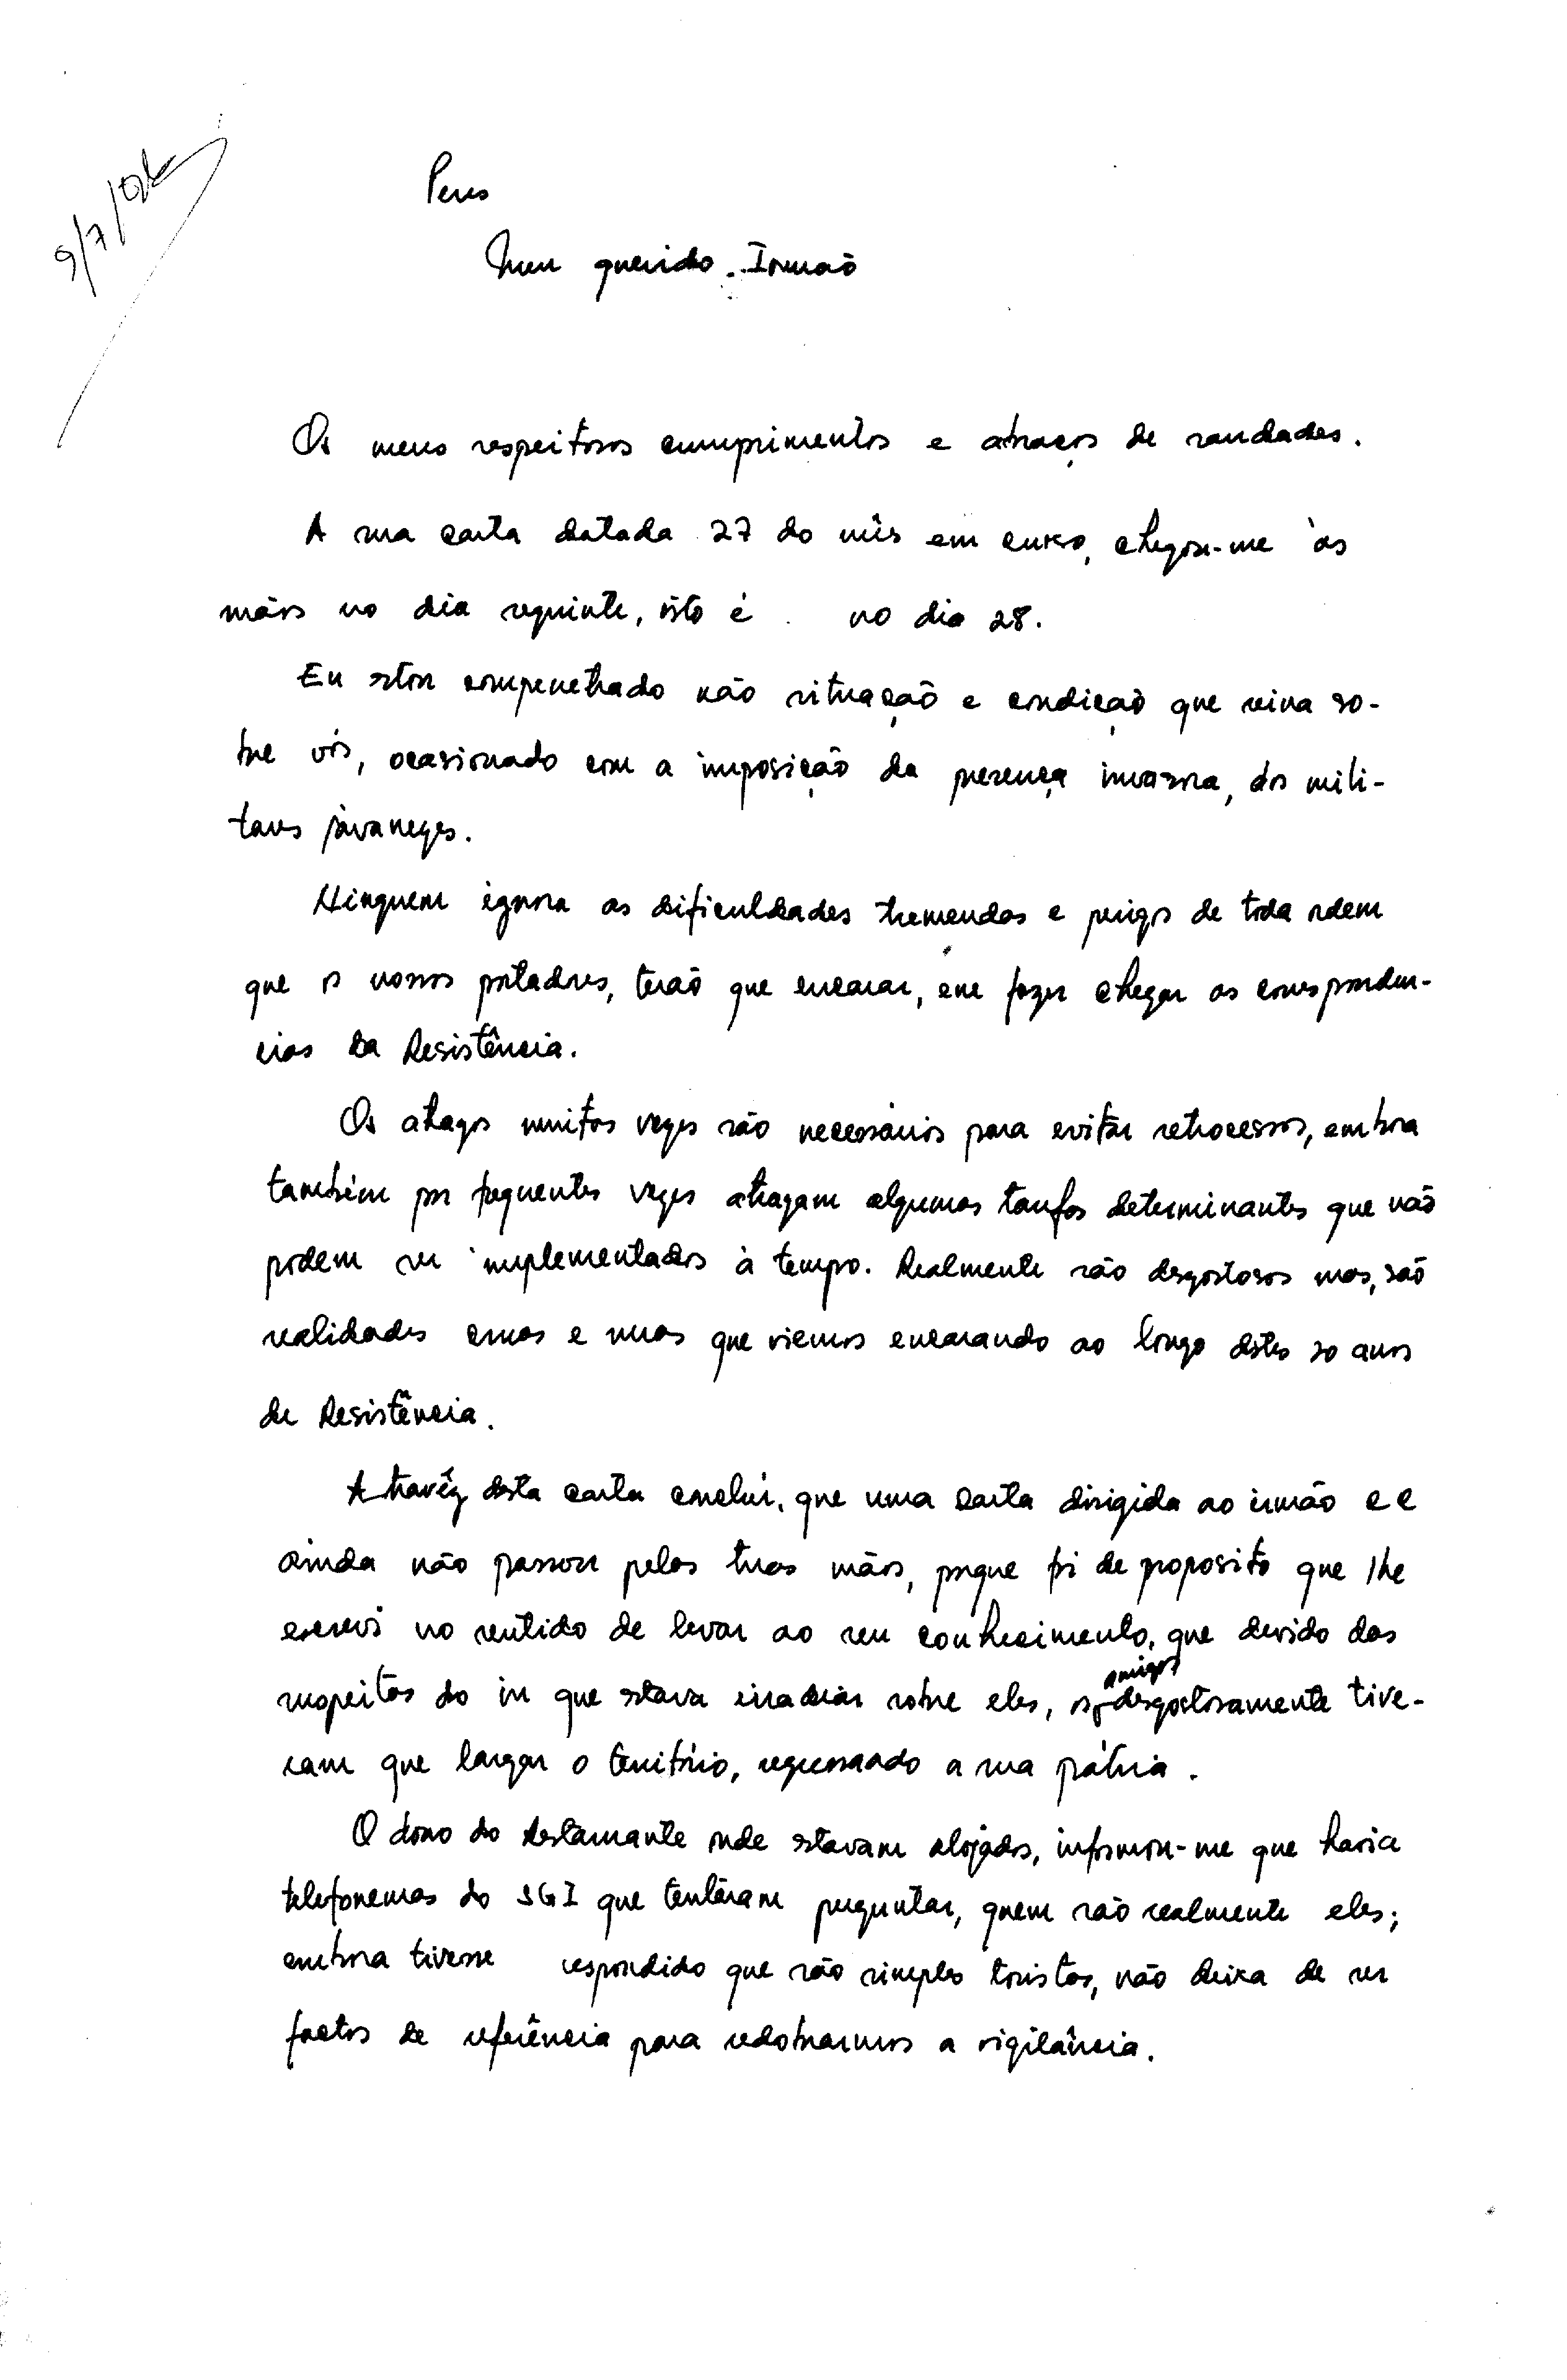 9/7/94
Peres
Meu querido Irmão
Os meus respeitosos cumprimentos e abraços de saudades.
A sua carta datada 27 do mês em curso, chegou-me às
mãos no dia seguinte, isto é no dia 28.
Eu estou compenetrado não situação e condição que reina so-
bre vós, ocasionado com a imposição da presença invasora, dos mili-
tares javanezes.
Ninguem ignora as dificuldades tremendas e perigos de toda ordem
que os nossos portadores, terão que encarar, em fazer chegar as corresponden-
cias da Resistência.
Os atrazos muitas vezes são necessários para evitar retrocessos, embora
também por frequentes vezes atrazam algumas tarefas determinantes que não
podem ser implementadas à tempo. Realmente são desgostosos mas, são
realidades cruas e nuas que viemos encarando ao longo destes 20 anos
de Resistência.
Atravéz desta carta conclui, que uma carta dirigida ao irmão CC
ainda não passou pelas tuas mãos, porque foi de proposito que lhe
escrevi no sentido de levar ao seu conhecimento, que devido das
suspeitas do in que estava irradiar sobre eles, os amigos desgostosamente tive-
ram que largar o território, regressando a sua pátria.
O dono do Restaurante onde estavam alojados, informou-me que havia
telefonemas do SGI que tentaram perguntar, quem são realmente eles;
embora tivesse respondido que são simples turistas, não deixa de ser
factos de referência para redobrarmos a vigilância.